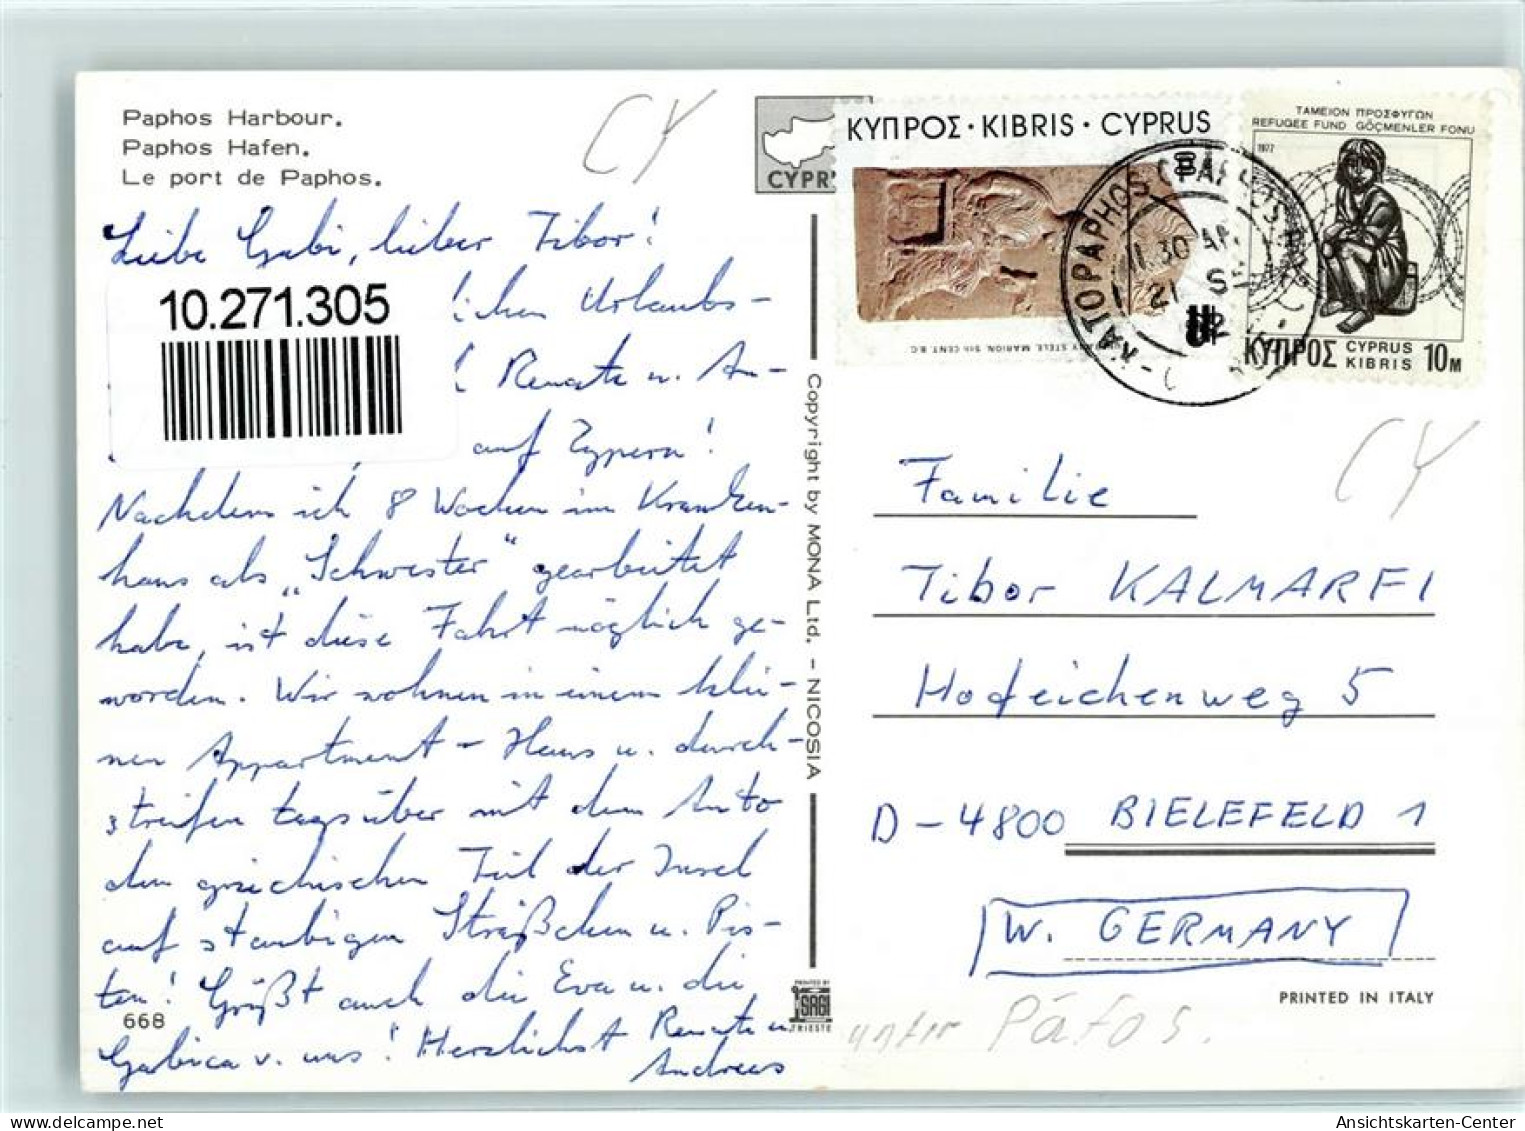 Paphos Harbour.
Paphos Hafen.
Le port de Paphos.
CY
CYPR
ΚΥΠΡΟΣ · KIBRIS · CYPRUS
STELE, MARION, 5TH CENT. B.C.
ΤΑΜΕΙΟΝ ΠΡΟΣΦΥΓΩΝ
REFUGEE FUND GÖÇMENLER FONU
1977
ΚΥΠΡΟΣ CYPRUS KIBRIS 10M
KATOPAPHOS (PAPHOS)
11.30 AM
21 SE
82
Liebe Gabi, lieber Tibor!
lichen Urlaubs-
Renate u. An-
auf Zypern!
Nachdem ich 8 Wochen im Kranken-
haus als „Schwester“ gearbeitet
habe, ist diese Fahrt möglich ge-
worden. Wir wohnen in einem klei-
nen Appartment-Haus u. durch-
streifen tagsüber mit dem Auto
den griechischen Teil der Insel
auf staubigen Sträßchen u. Pis-
ten! Grüßt auch die Eva u. die
Gabica v. uns! Herzlichst Renate u
Andreas
10.271.305
668
Copyright by MONA Ltd. - NICOSIA
PRINTED BY
SAGI
TRIESTE
CY
Familie
Tibor KALMARFI
Hofeichenweg 5
D-4800 BIELEFELD 1
W. GERMANY
PRINTED IN ITALY
unter Páfos.
www.oldthing.net
Ansichtskarten-Center